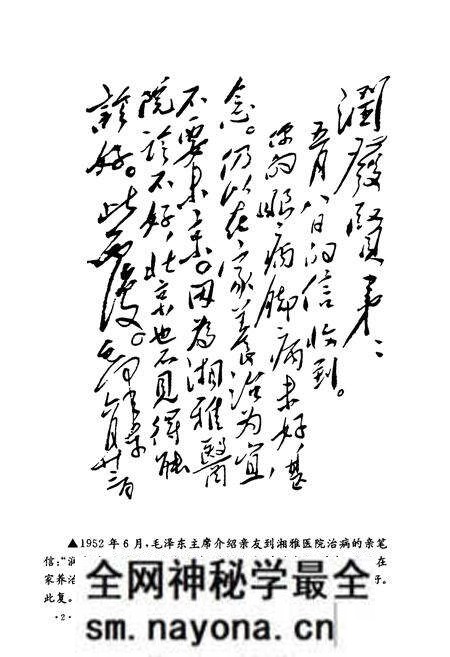 潤發賢弟：
五月八日的信收到。
你的眼病脚病未好，甚
念。仍以在家養治为宜，
不要来京。因为湘雅醫
院诊不好，北京也不見得能
診好。此覆。毛澤東
六月廿三日
▲1952年6月，毛泽东主席介绍亲友到湘雅医院治病的亲笔
信：“润 在
家养治
此复。
·2·
全网神秘学最全
sm.nayona.cn